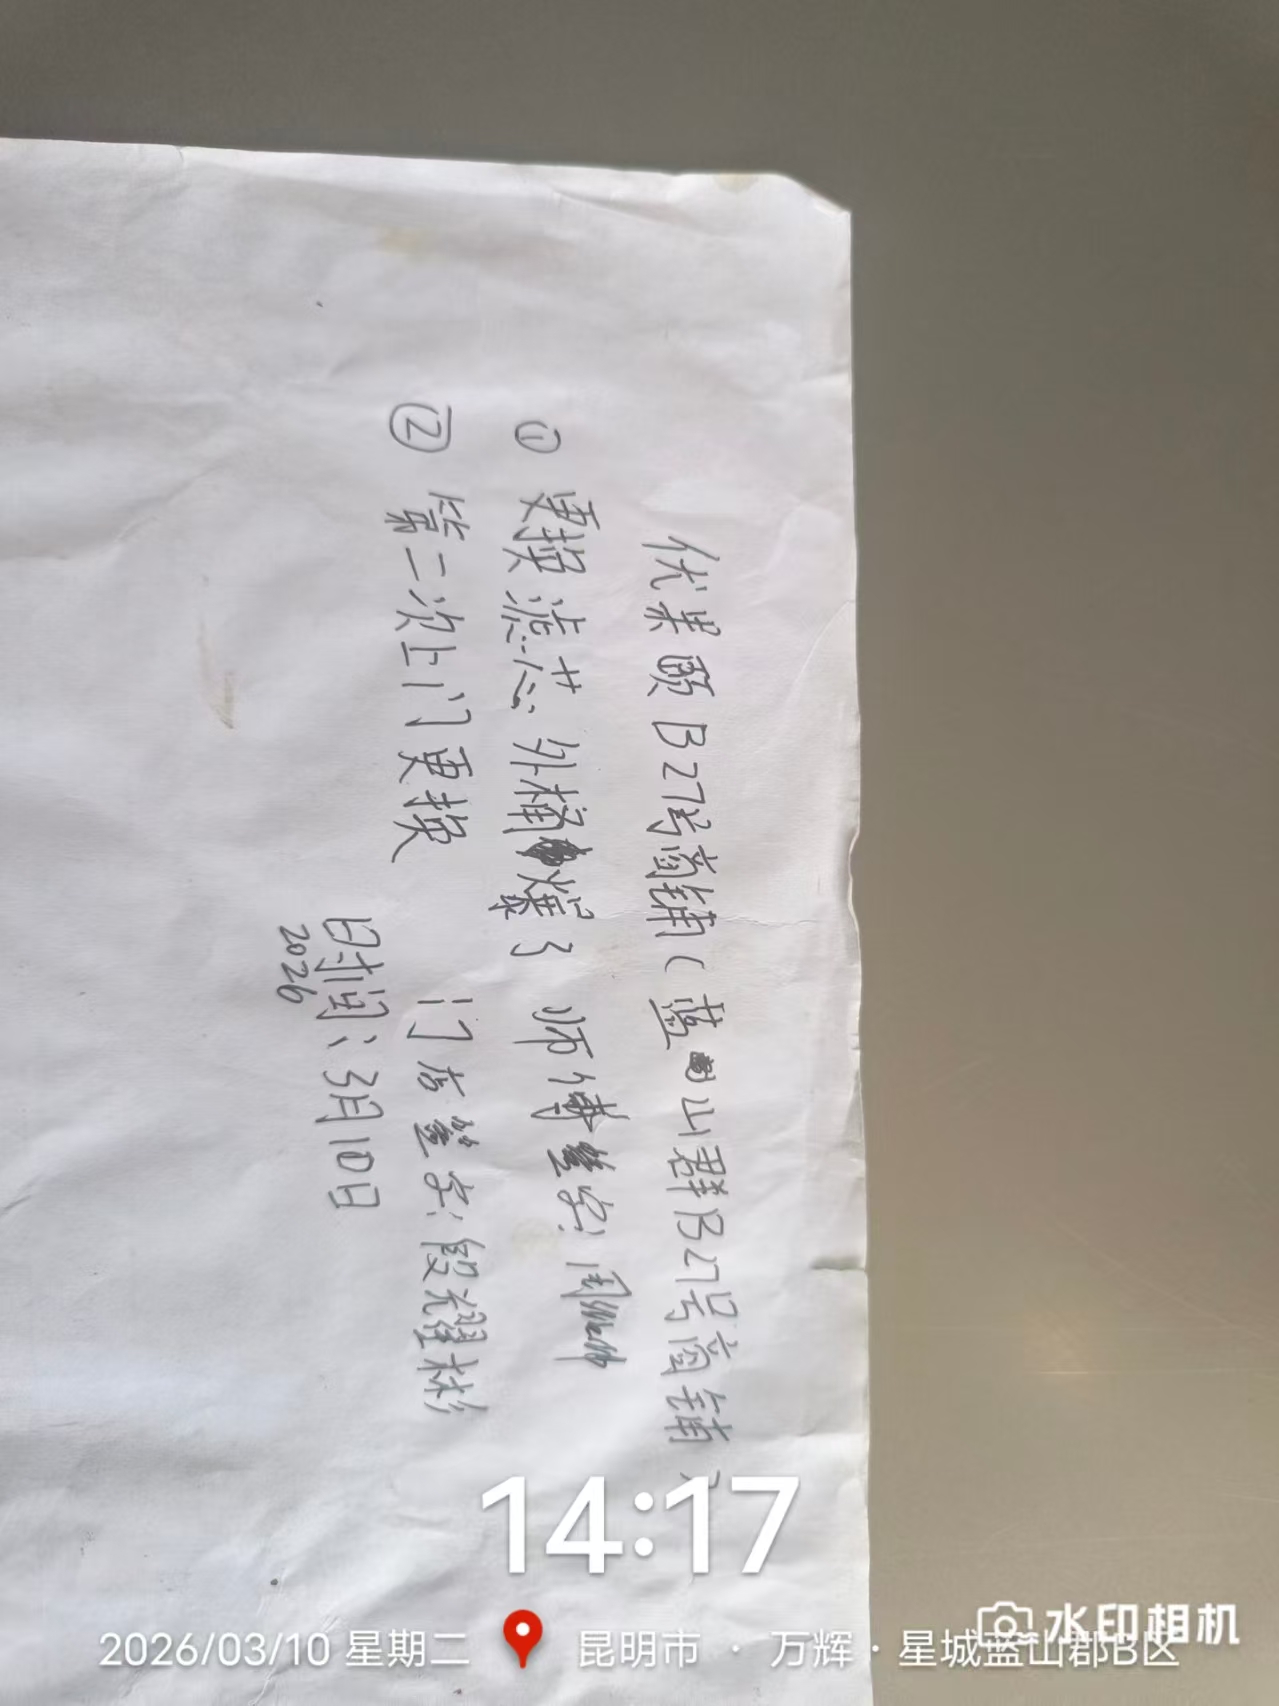 优果颐B27号商铺(蓝山群B27号商铺)
① 更换滤芯外桶爆了 师傅签字:周
② 第二次上门更换 门店签字:假耀彬
时间:3月10日
2026
14:17
2026/03/10 星期二 昆明市 · 万辉·星城蓝山郡B区
水印相机